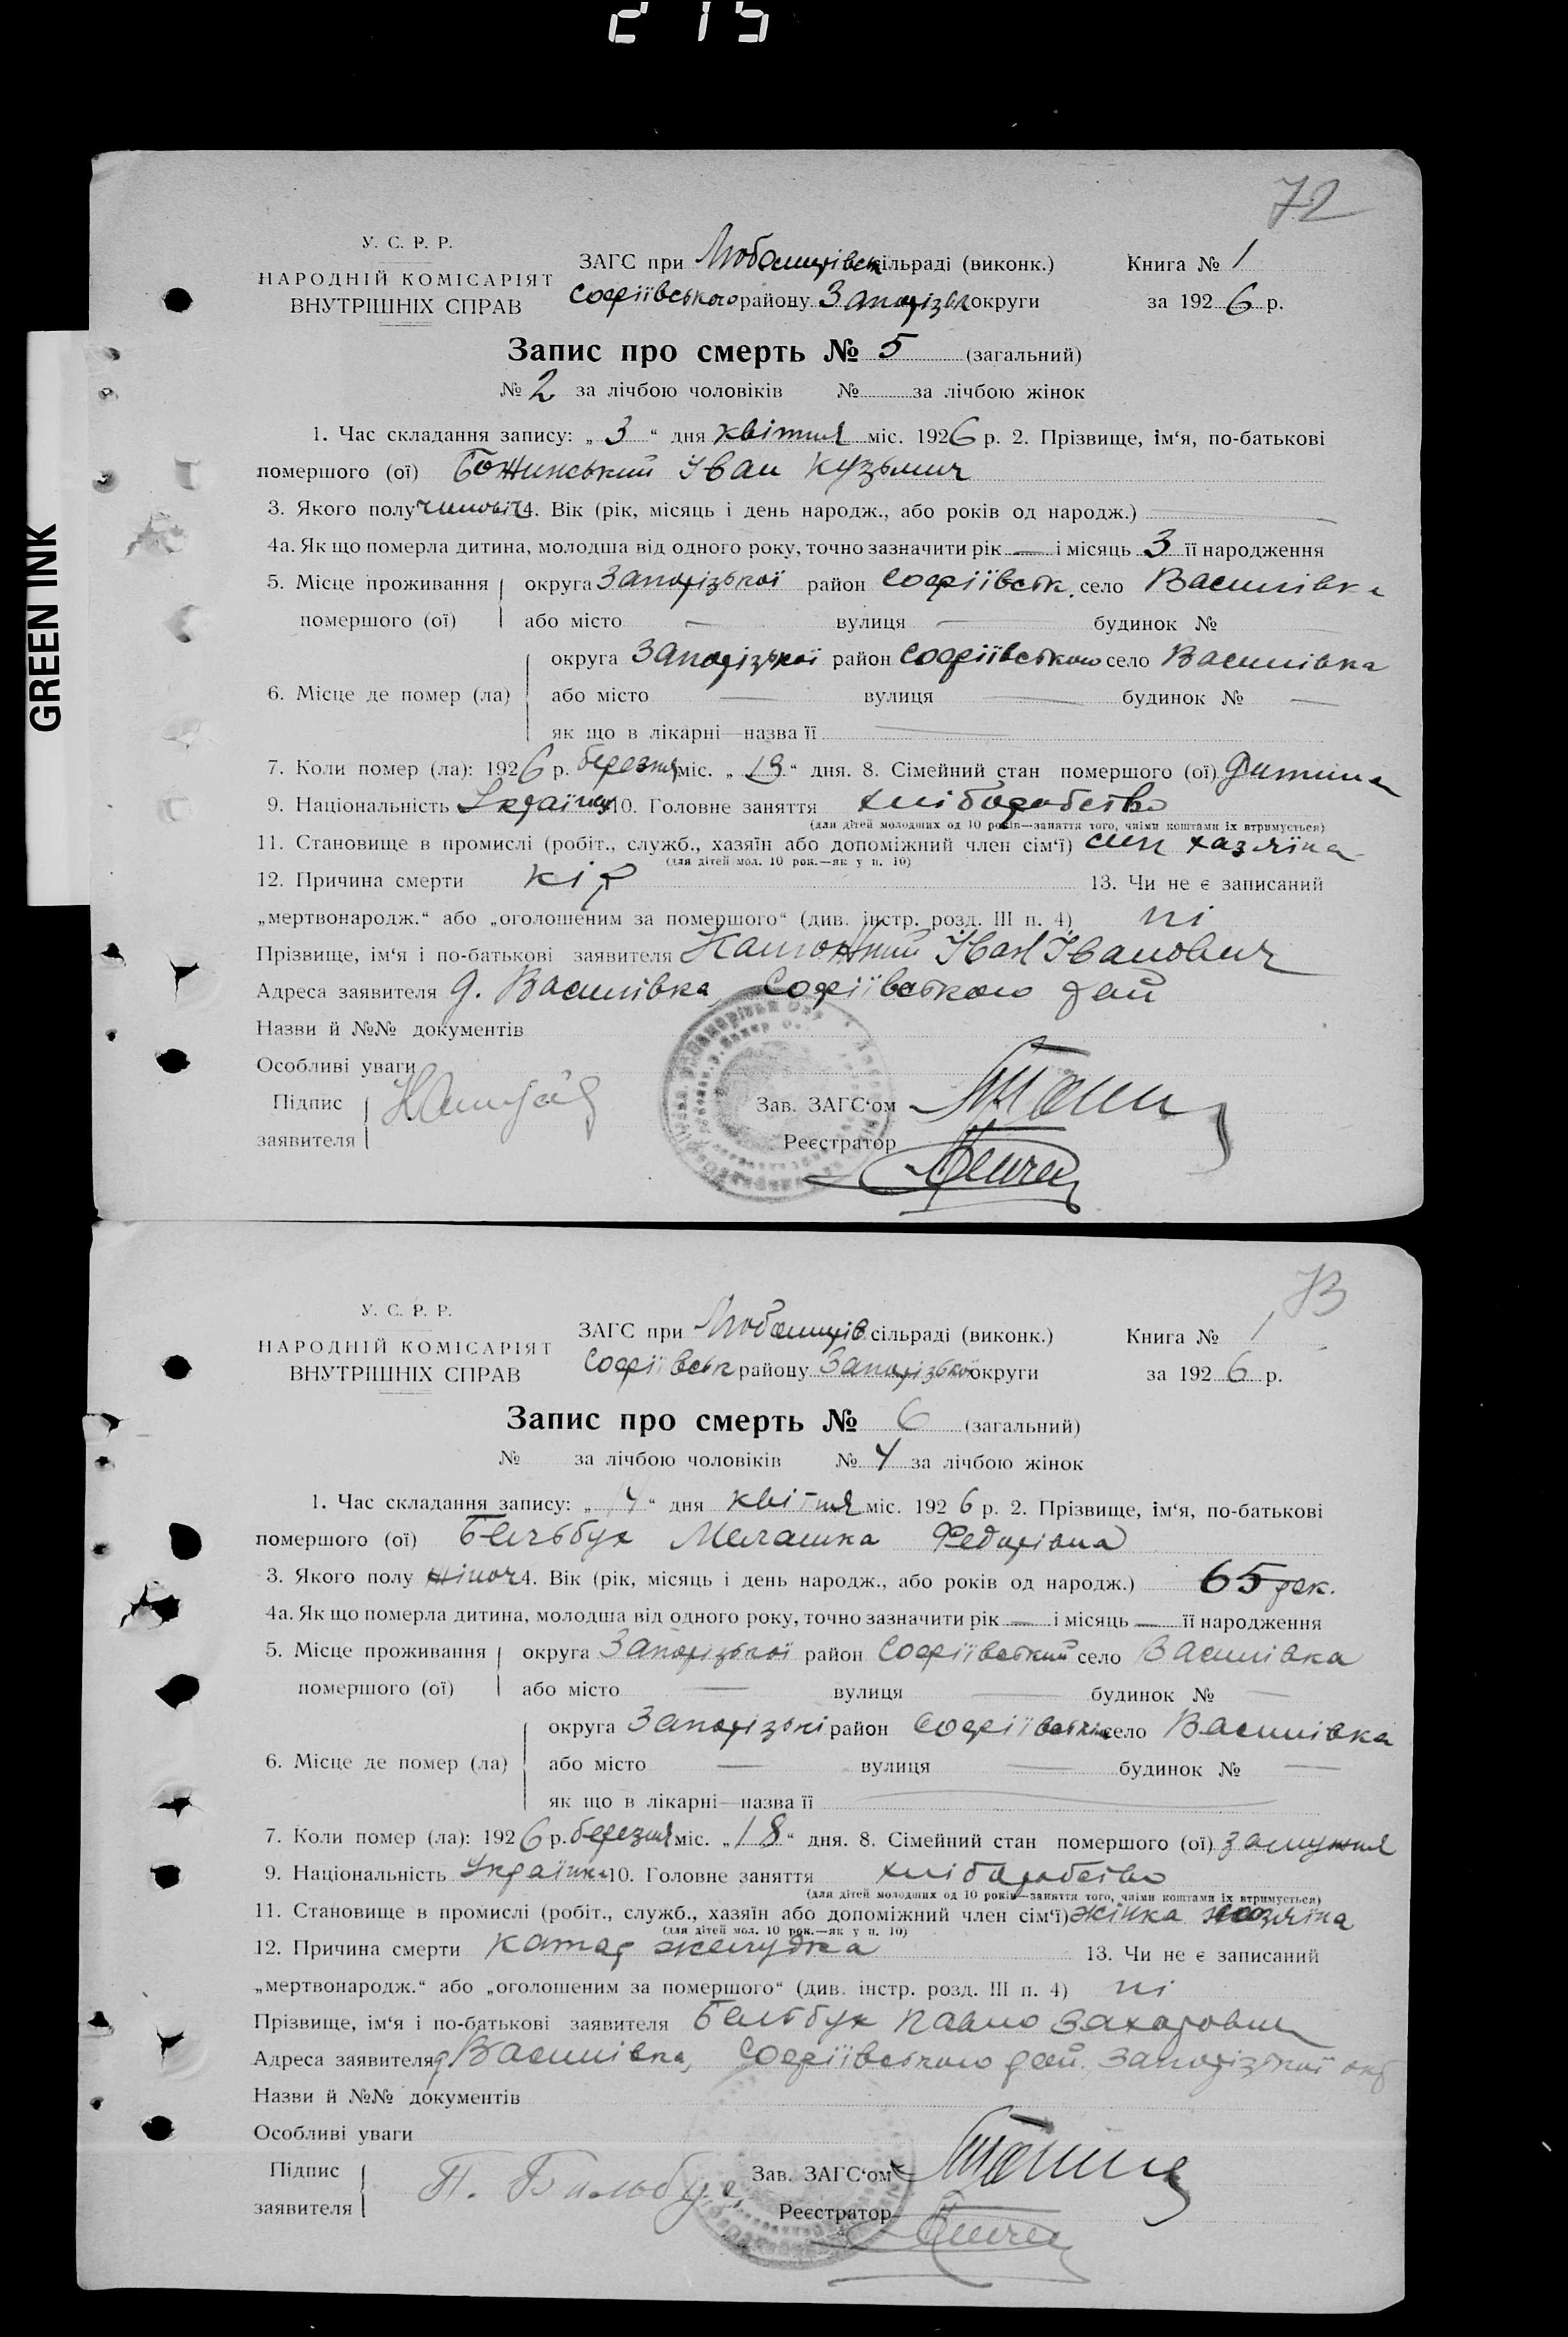 215
GREEN INK
72
У. С. Р. Р.
НАРОДНІЙ КОМІСАРІЯТ
ВНУТРІШНІХ СПРАВ
ЗАГС при сільраді (виконк.)
Софіївського району Запорізьк округи
Книга № 1
за 1926 р.
Запис про смерть № 5 (загальний)
№ 2 за лічбою чоловіків № за лічбою жінок
1. Час складання запису: „ 3 “ дня квітня міс. 1926 р. 2. Прізвище, ім‘я, по-батькові
помершого (ої) Божинський Іван Кузьмич
3. Якого полу 4. Вік (рік, місяць і день народж., або років од народж.)
4а. Як що померла дитина, молодша від одного року, точно зазначити рік — і місяць 3 її народження
5. Місце проживання округа Запорізької район Софіївськ. село Василівка
помершого (ої) або місто — вулиця — будинок №
округа Запорізької район Софіївського село Василівка
6. Місце де помер (ла) або місто — вулиця — будинок № —
як що в лікарні—назва її —
7. Коли помер (ла): 1926 р. березня міс. „ 13 “ дня. 8. Сімейний стан помершого (ої) дитина
9. Національність Українец 10. Головне заняття хліборобство
(для дітей молодших од 10 років—заняття того, чиїми коштами їх втримується)
11. Становище в промислі (робіт., служб., хазяїн або допоміжний член сім‘ї) син хазяїна
(для дітей мол. 10 рок.—як у п. 10)
12. Причина смерти кір 13. Чи не є записаний
„мертвонародж.“ або „оголошеним за помершого“ (див. інстр. розд. III п. 4) ні
Прізвище, ім‘я і по-батькові заявителя Іван Іванович
Адреса заявителя д. Василівка, Софіївського рай
Назви й №№ документів
Особливі уваги
Підпис
заявителя
Зав. ЗАГС‘ом
Реєстратор
73
У. С. Р. Р.
НАРОДНІЙ КОМІСАРІЯТ
ВНУТРІШНІХ СПРАВ
ЗАГС при сільраді (виконк.)
Софіївськ району Запорізької округи
Книга № 1
за 1926 р.
Запис про смерть № 6 (загальний)
№ за лічбою чоловіків № 4 за лічбою жінок
1. Час складання запису: „ 4 “ дня квітня міс. 1926 р. 2. Прізвище, ім‘я, по-батькові
помершого (ої) Бельбух Мелашка Федорівна
3. Якого полу жіноч 4. Вік (рік, місяць і день народж., або років од народж.) 65 рок.
4а. Як що померла дитина, молодша від одного року, точно зазначити рік — і місяць — її народження
5. Місце проживання округа Запорізької район Софіївський село Василівка
помершого (ої) або місто — вулиця — будинок № —
округа район село Василівка
6. Місце де помер (ла) або місто — вулиця — будинок № —
як що в лікарні—назва її —
7. Коли помер (ла): 1926 р. березня міс. „ 18 “ дня. 8. Сімейний стан помершого (ої) замужня
9. Національність Українка 10. Головне заняття хліборобство
(для дітей молодших од 10 років—заняття того, чиїми коштами їх втримується)
11. Становище в промислі (робіт., служб., хазяїн або допоміжний член сім‘ї) жінка хозяїна
(для дітей мол. 10 рок.—як у п. 10)
12. Причина смерти катар желудка 13. Чи не є записаний
„мертвонародж.“ або „оголошеним за помершого“ (див. інстр. розд. III п. 4) ні
Прізвище, ім‘я і по-батькові заявителя Бельбух Павло Захарович
Адреса заявителя д. Василівка, Софіївського рай. Запорізької окр
Назви й №№ документів
Особливі уваги
Підпис
заявителя П.
Зав. ЗАГС‘ом
Реєстратор